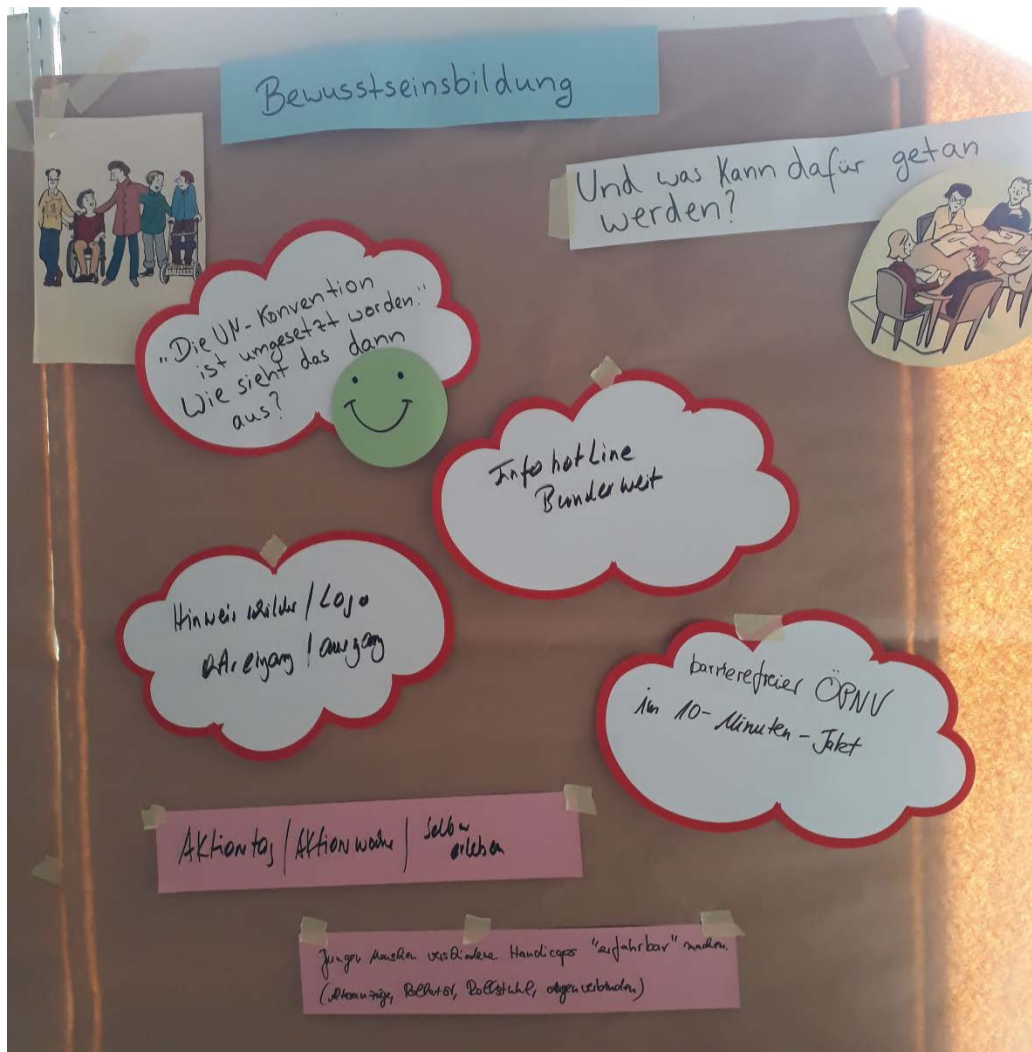 Bewusstseinsbildung
Und was kann dafür getan
werden?
"Die UN-Konvention
ist umgesetzt worden."
Wie sieht das dann
aus?
Infohotline
Bundesweit
Hinweisschilder / Logo
eingang / ausgang
barrierefreier ÖPNV
im 10-Minuten-Takt
Aktiontag / Aktionwoche / selber
erleben
Jungen Menschen verschiedene Handicaps "erfahrbar" machen.
(Alteranzüge, Rollator, Rollstuhl, Augen verbinden)